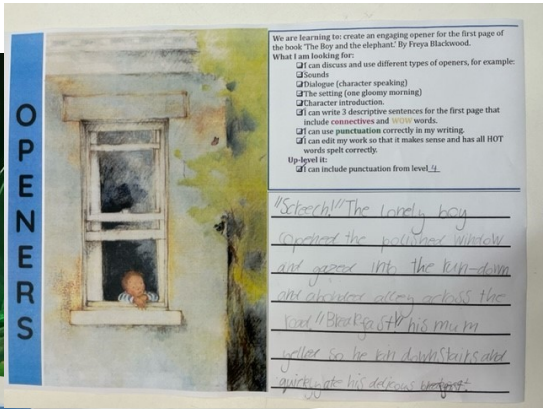 OPENERS
We are learning to: create an engaging opener for the first page of
the book 'The Boy and the elephant.' By Freya Blackwood.
What I am looking for:
I can discuss and use different types of openers, for example:
Sounds
Dialogue (character speaking)
The setting (one gloomy morning)
Character introduction.
I can write 3 descriptive sentences for the first page that
include connectives and WOW words.
I can use punctuation correctly in my writing.
I can edit my work so that it makes sense and has all HOT
words spelt correctly.
Up-level it:
I can include punctuation from level 4
"Screech!" The lonely boy
opened the polished window
and gazed into the run-down
and abonded alley across the
road "Breakfast!" his mum
yelled so he ran downstairs and
quickly ate his delicous